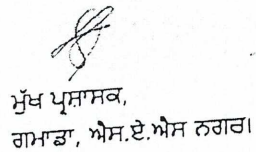 ਮੁੱਖ ਪ੍ਰਸ਼ਾਸਕ,
ਗਮਾਡਾ, ਐਸ.ਏ.ਐਸ ਨਗਰ।